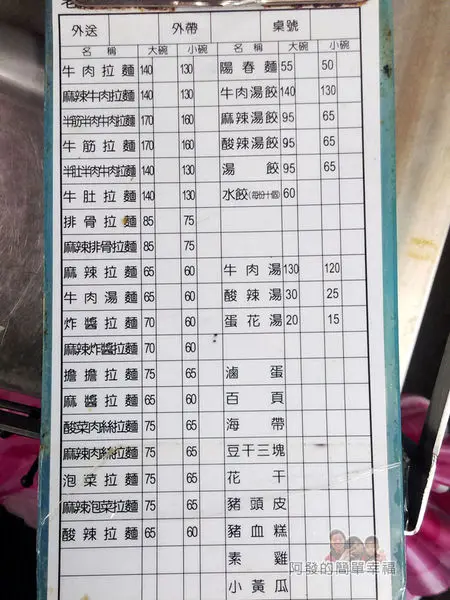 外送 外帶 桌號
名稱 大碗 小碗 名稱 大碗 小碗
牛肉拉麵 140 130 陽春麵 55 50
麻辣牛肉拉麵 140 130 牛肉湯餃 140 130
半筋半肉牛肉拉麵 170 160 麻辣湯餃 95 65
牛筋拉麵 170 160 酸辣湯餃 95 65
半肚半肉牛肉拉麵 140 130 湯餃 95 65
牛肚拉麵 140 130 水餃(每份十個) 60
排骨拉麵 85 75
麻辣排骨拉麵 85 75
麻辣拉麵 65 60 牛肉湯 130 120
牛肉湯麵 65 60 酸辣湯 30 25
炸醬拉麵 70 60 蛋花湯 20 15
麻辣炸醬拉麵 70 60
擔擔拉麵 75 65 滷蛋
麻醬拉麵 75 65 百頁
酸菜肉絲拉麵 75 65 海帶
麻辣肉絲拉麵 75 65 豆干三塊
泡菜拉麵 75 65 花干
麻辣泡菜拉麵 75 65 豬頭皮
酸辣拉麵 65 60 豬血糕
素雞
小黃瓜
阿發的簡單幸福